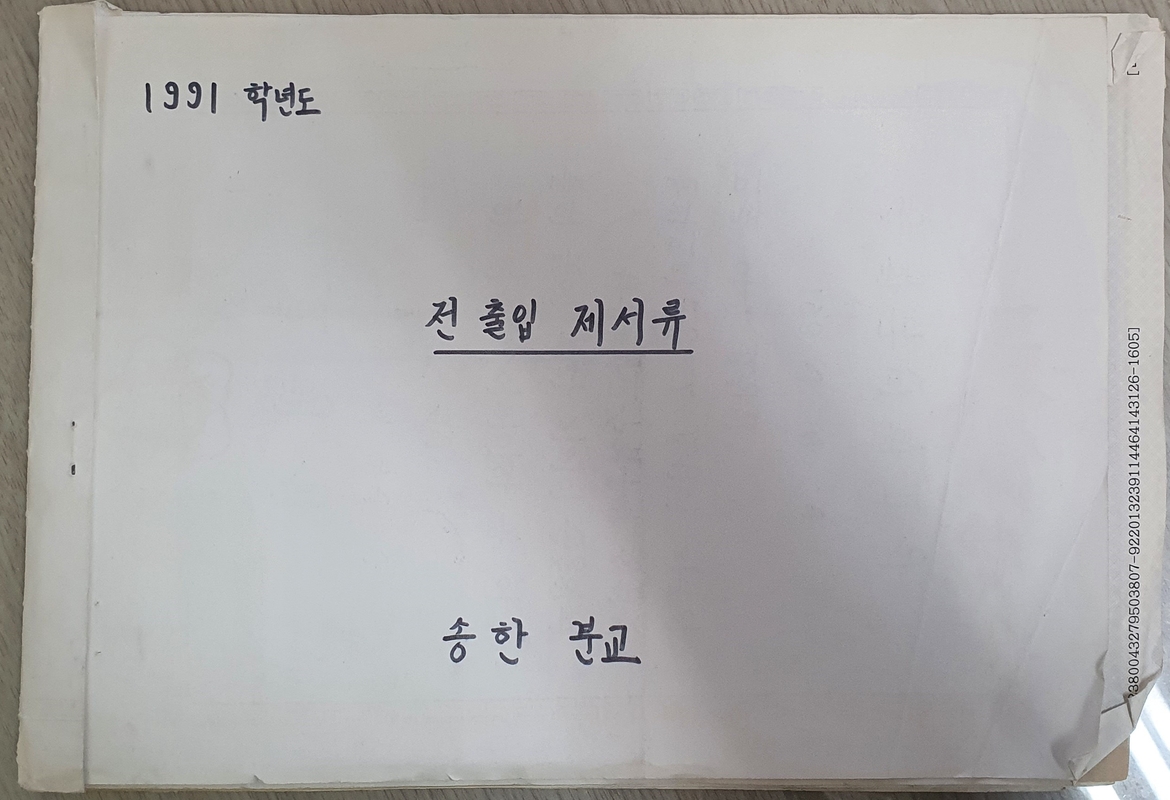 1991 학년도
전 출입 제서류
송한 분교
38004327950380７-9220132391144641431２6-1605]